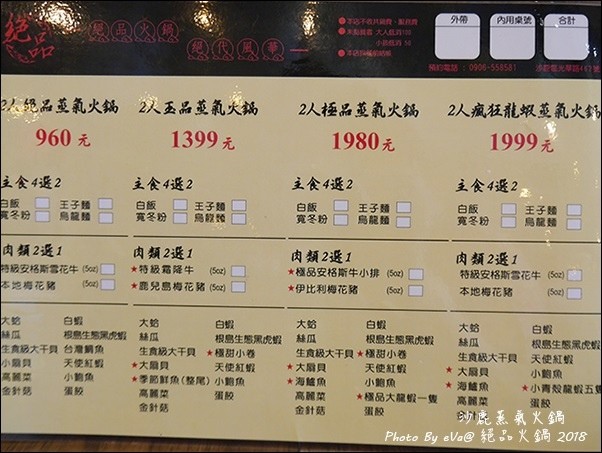 絕品
絕品火鍋
絕代風華
●本店不收共鍋費、服務費
外帶
內用桌號
合計
預約電話：0906-558581
2人絕品蒸氣火鍋
960元
主食4選2
白飯 王子麵
寬冬粉 烏龍麵
肉類2選1
特級安格斯雪花牛 (5oz)
本地梅花豬 (5oz)
大蛤 白蝦
絲瓜 根島生態黑虎蝦
生食級大干貝 台灣鯛魚
小扇貝 天使紅蝦
高麗菜 小鮑魚
金針菇 蛋餃
2人玉品蒸氣火鍋
1399元
主食4選2
白飯 王子麵
寬冬粉 烏龍麵
肉類2選1
★特級霜降牛 (5oz)
★鹿兒島梅花豬 (5oz)
大蛤 白蝦
絲瓜 根島生態黑虎蝦
生食級大干貝 ★極甜小卷
★大扇貝 天使紅蝦
★季節鮮魚(整尾) 小鮑魚
高麗菜 蛋餃
金針菇
2人極品蒸氣火鍋
1980元
主食4選2
白飯 王子麵
寬冬粉 烏龍麵
肉類2選1
★極品安格斯牛小排 (5oz)
★伊比利梅花豬 (5oz)
大蛤 白蝦
絲瓜 根島生態黑虎蝦
生食級大干貝 ★極甜小卷
★大扇貝 天使紅蝦
★海鱸魚 小鮑魚
高麗菜 ★極品大龍蝦一隻
金針菇 蛋餃
2人瘋狂龍蝦蒸氣火鍋
1999元
主食4選2
白飯 王子麵
寬冬粉 烏龍麵
肉類2選1
特級安格斯雪花牛 (5oz)
本地梅花豬 (5oz)
大蛤 白蝦
絲瓜 根島生態黑虎蝦
生食級大干貝 天使紅蝦
★大扇貝 小鮑魚
★海鱸魚 ★小青殼龍蝦五隻
高麗菜 蛋餃
金針菇
沙鹿蒸氣火鍋
Photo By eVa@ 絕品火鍋 2018